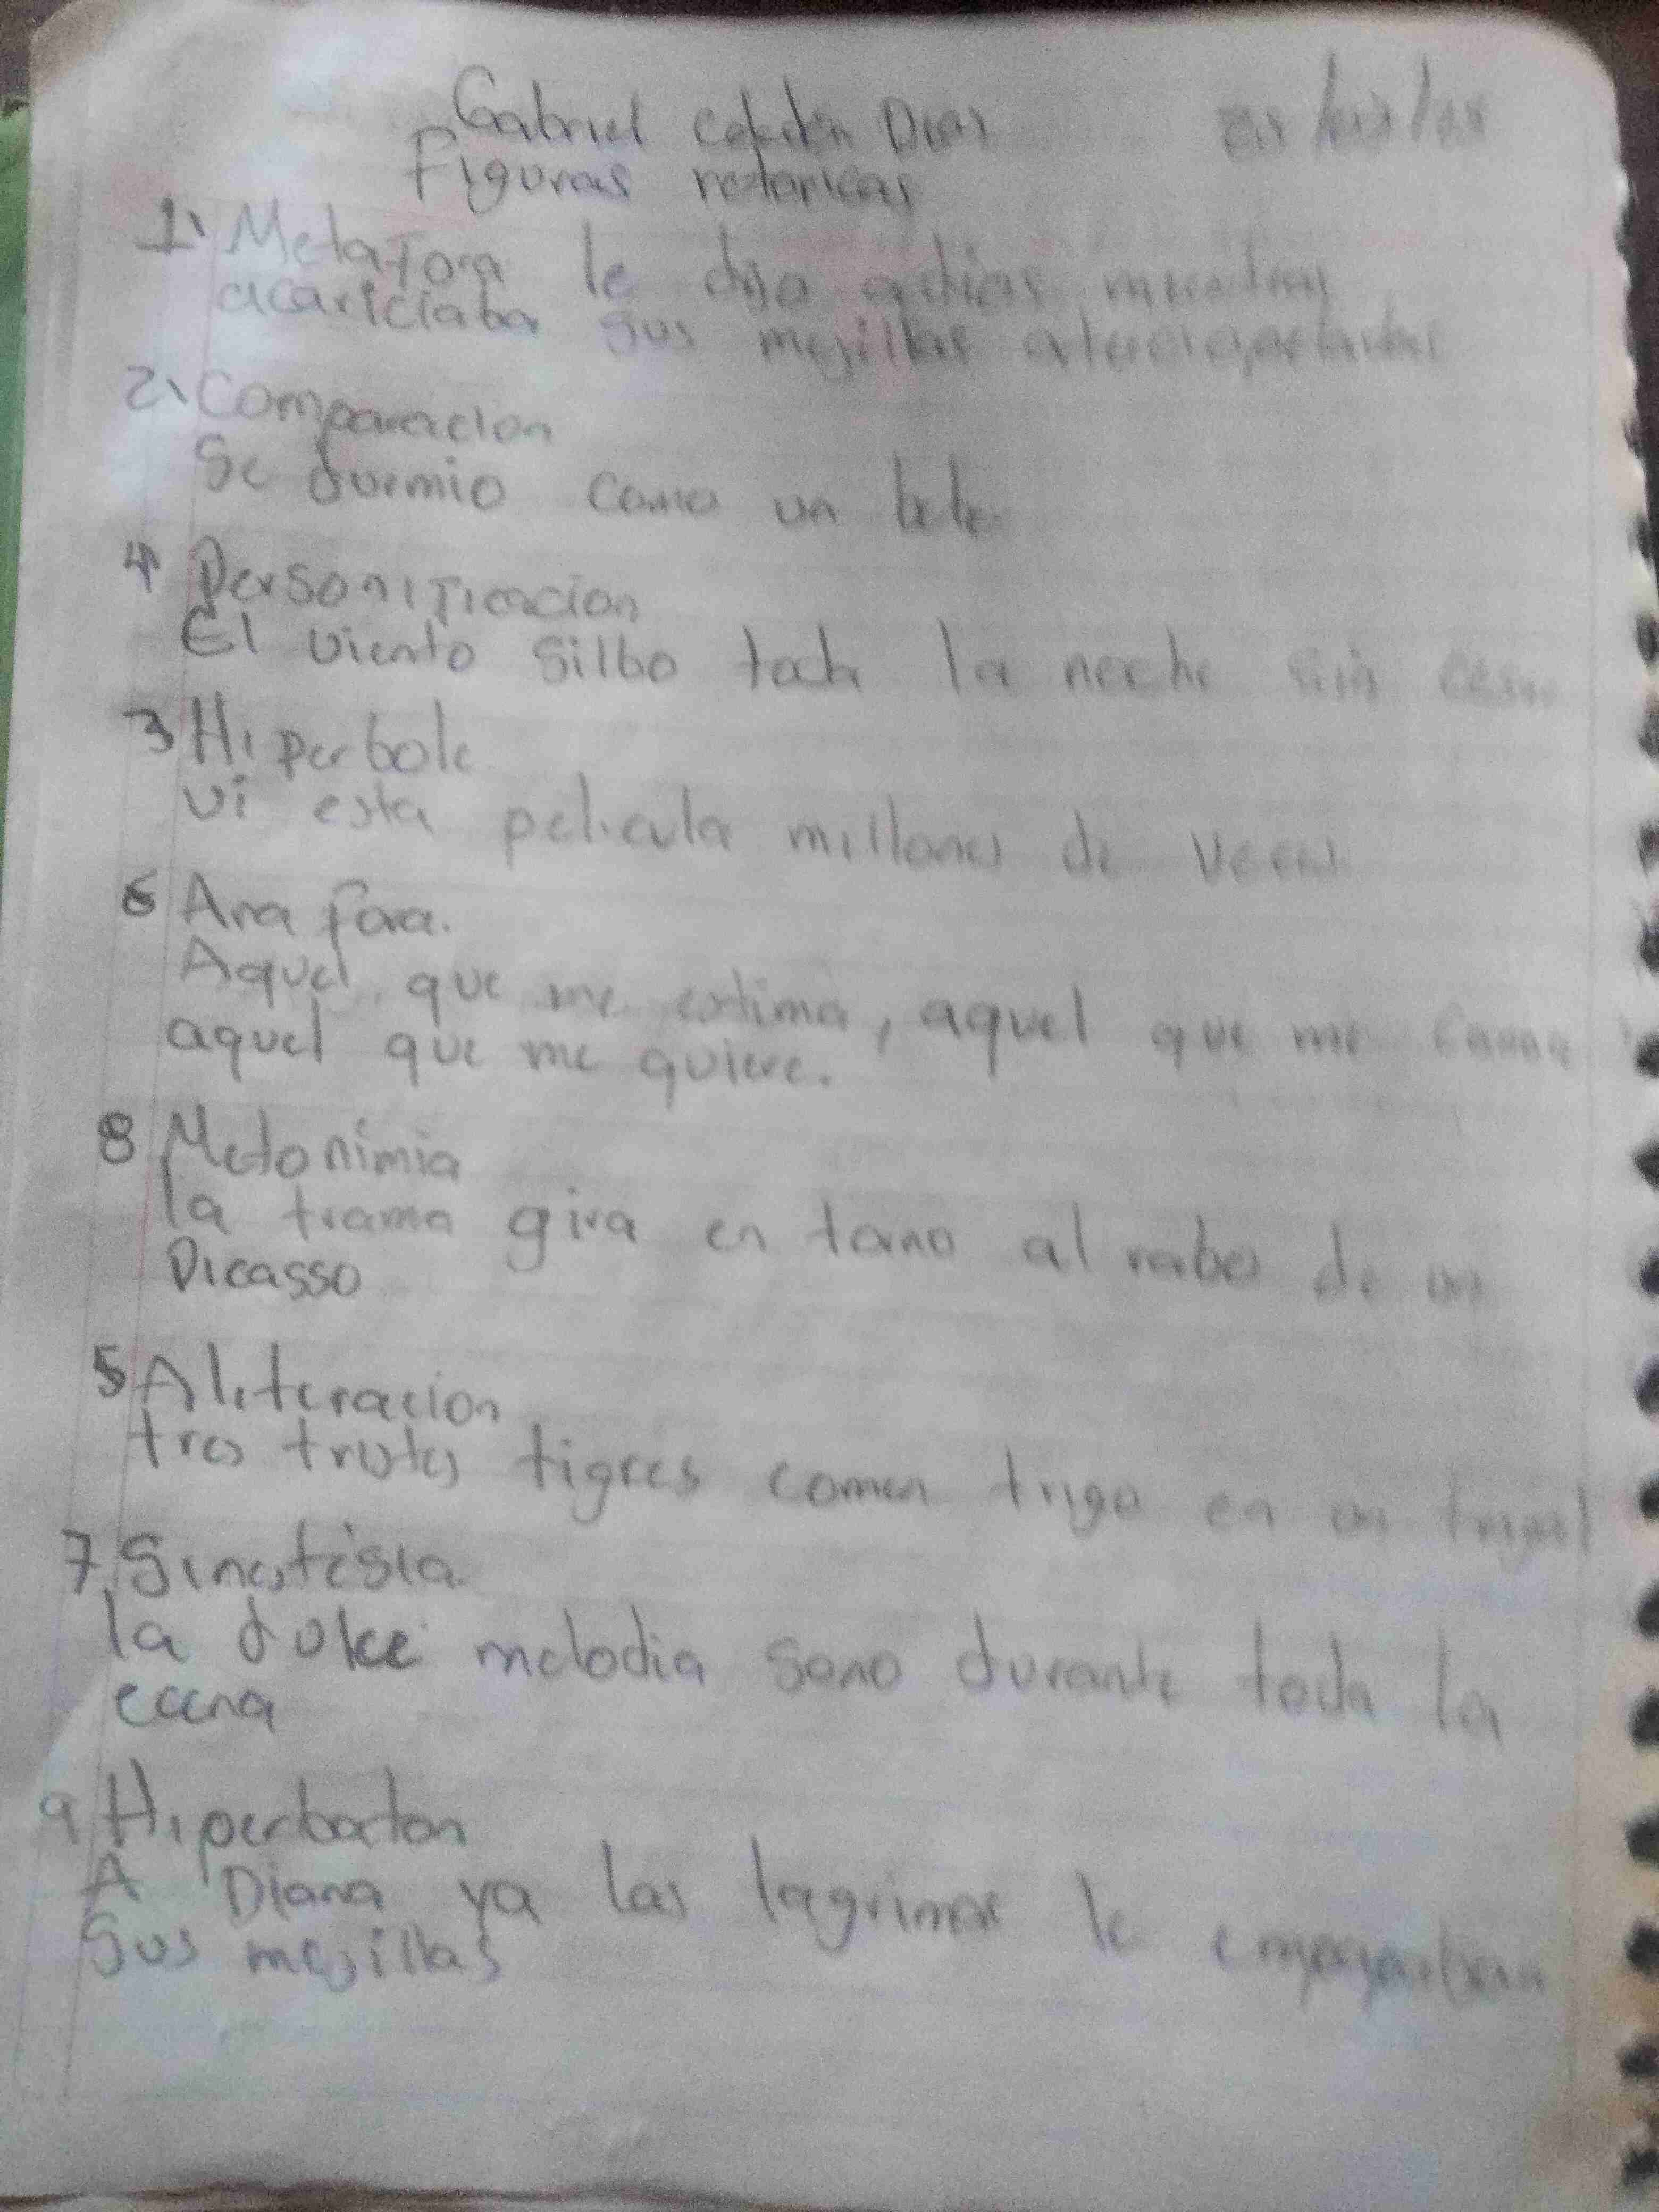 Gabriel Dias
Figuras retoricas
1 Metafora le dijo adios mientras
acariciaba sus mejillas aterciopeladas
2 Comparacion
Se durmio como un bebe
4 Personificacion
El viento silbo toda la noche sin cesar
3 Hiperbole
vi esta pelicula millones de veces
6 Anafora.
Aquel que me estima, aquel que me
aquel que me quiere.
8 Metonimia
la trama gira en torno al robo de un
Picasso
5 Aliteracion
tres tristes tigres comen trigo en un trigal
7 Sinestesia.
la dulce melodia sono durante toda la
ecena
9 Hiperbaton
A Diana ya las lagrimas le empapaban
Sus mejillas